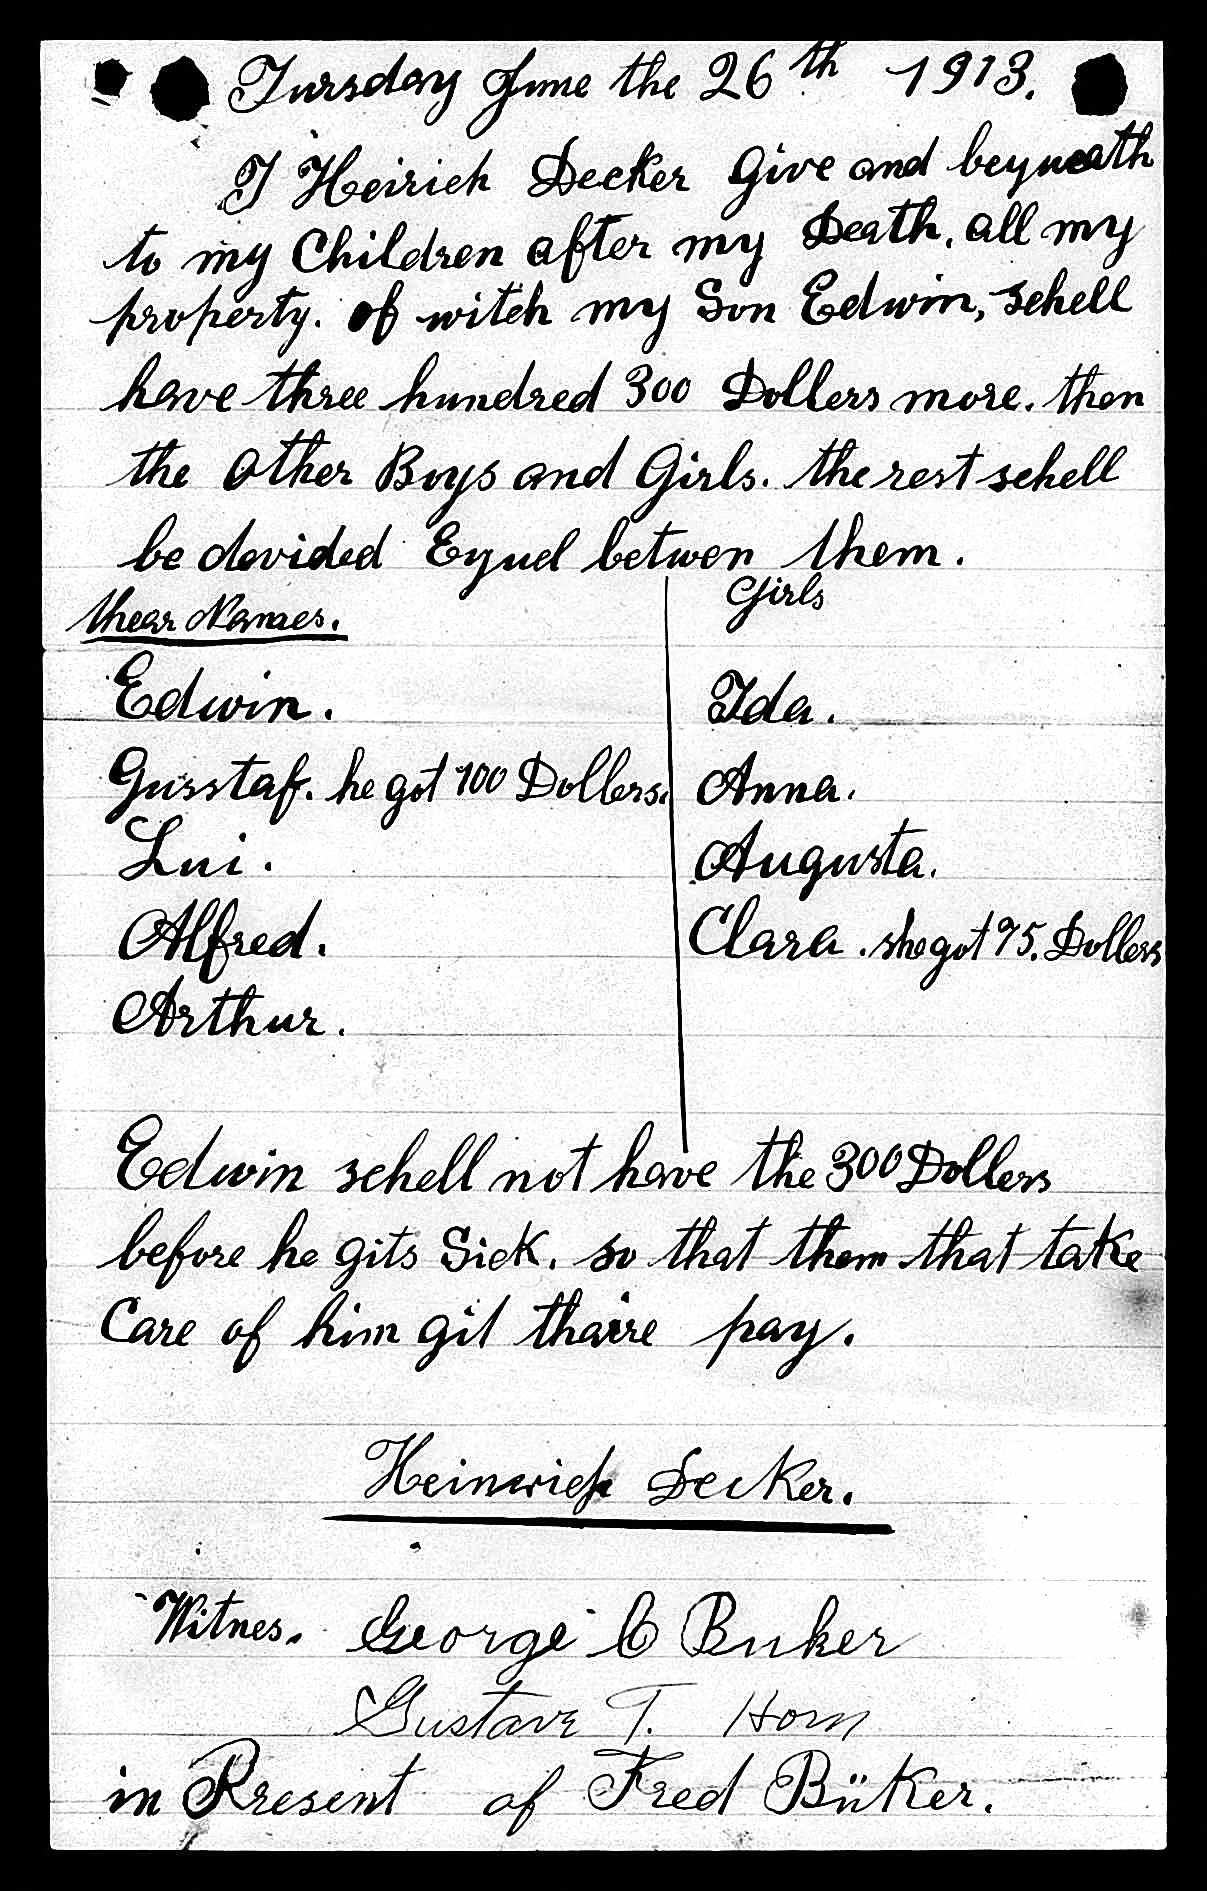 Tursday June the 26th 1913.
I Heirich Decker Give and beyueath
to my Children after my Death, all my
property. of witch my Son Edwin, schell
have three hundred 300 Dollers more. then
the Other Boys and Girls. the rest schell
be devided Eyuel betwen them.
thear Names.
Girls
Edwin. Ida.
Gusstaf. he got 100 Dollers. Anna.
Lui. Augusta.
Alfred. Clara. she got 75. Dollers
Arthur.
Edwin schell not have the 300 Dollers
before he gits Sick. so that them that take
Care of him git thaire pay.
Heinrich Decker.
Witnes. George C Buker
Gustave T. Horn
in Present of Fred Büker.